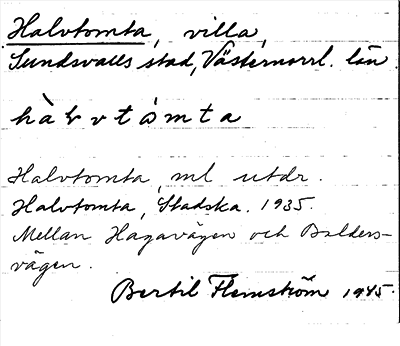 Halvtomta, villa,
Sundsvalls stad, Västernorrl. län.
hàlvtómta
Halvtomta, ml utdr.
Halvtomta, Stadska. 1935.
Mellan Hagavägen och Balders-
vägen.
Bertil Flemström 1945.